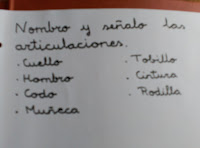 Nombro y señalo las
articulaciones.
· Cuello
· Hombro
· Codo
· Muñeca
· Tobillo
· Cintura
· Rodilla